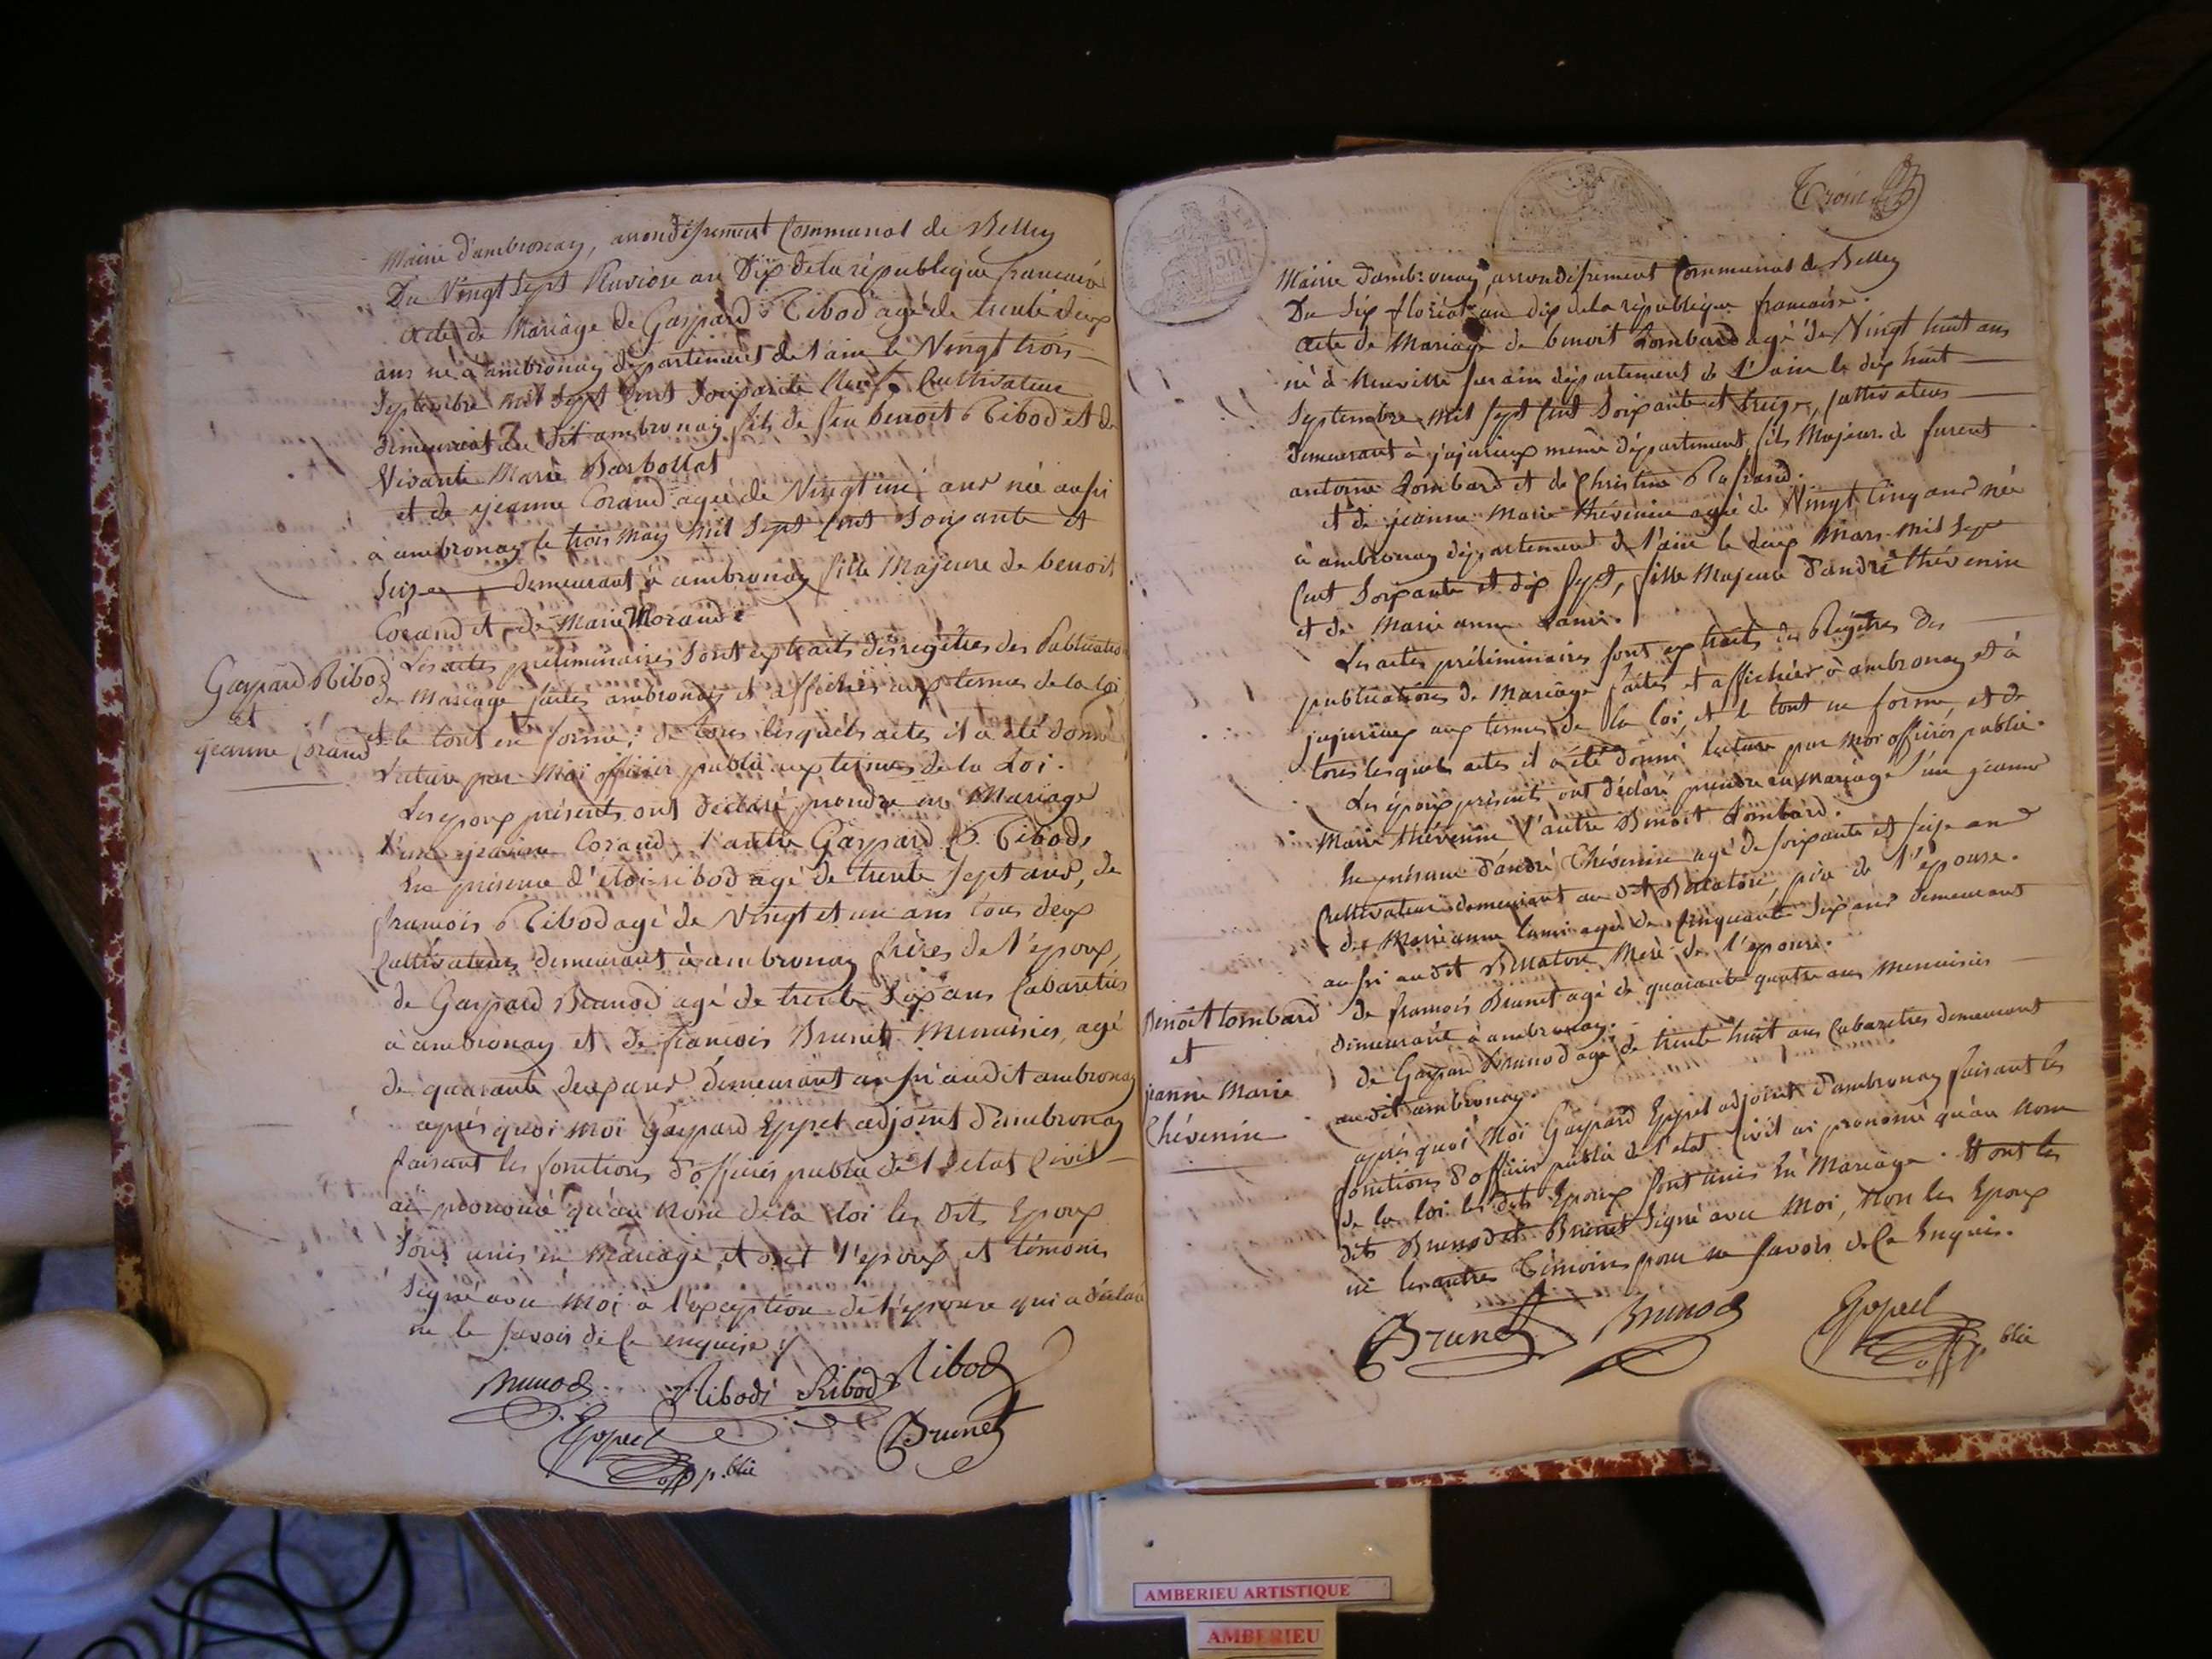 Mairie d'ambronay, arrondissement Communal de Belley
Du Vingt Sept Pluviose an Dix de la république francaise
acte de Mariage de Gaspard Ribod agé de trente deux
ans né à ambronay département de l'ain le Vingt trois
Septembre mil Sept Cent Soixante Neuf, Cultivateur
demeurant au dit ambronay fils de feu benoit Ribod et de
Vivante Marie Barbollat
et de jeanne Corand agée de Vingt cinq ans née aussi
à ambronay le trois May Mil Sept Cent Soixante et
Seize demeurant à ambronay fille Majeure de benoit
Corand et de Marie Morand
Gaspard Ribod
et
jeanne Corand
Les actes préliminaires sont extraits des registres des Publications
de Mariage faites ambronay et affichés aux termes de la loi
et le tout en forme; de tous lesquels actes il a été donné
Lecture par Moi officier public aux termes de la Loi.
Les epoux présents ont déclaré prendre en Mariage
l'une jeanne Corand, l'autre Gaspard Ribod,
En présence d'éloi ribod agé de trente Sept ans, de
francois Ribod agé de Vingt et un ans tous deux
Cultivateurs demeurant à ambronay frères de l'epoux,
de Gaspard Brunod agé de trente Six ans Cabaretier
à ambronay et de francois Brunet Menuisier, agé
de quarante deux ans demeurant aussi au dit ambronay
après quoi moi Gaspard Eppel adjoint d'ambronay
faisant les fonctions d'officier public de l'etat Civil
ai prononcé qu'au Nom de la loi les dits Epoux
Sont unis en Mariage, et ont l'epoux et témoins
Signé avec Moi à l'exception de l'epouse qui a déclaré
ne le savoir de ce enquise
Brunod Ribod Ribod Ribod
Eppel off. p.blic Brunet
50
Mairie d'ambronay, arrondissement Communal de Belley
Du Six floréal an dix de la république francaise.
acte de Mariage de benoit Lombard agé de Vingt huit ans
né à Neuville sur ain département de l'ain le dix huit
Septembre Mil Sept Cent Soixante et treize, Cultivateur
demeurant à jujurieux même département, fils Majeur de furent
antoine Lombard et de Christine
et de jeanne Marie thévenin agée de Vingt Cinq ans née
à ambronay département de l'ain le deux Mars Mil Sept
Cent Soixante et dix Sept, fille Majeure d'andré thévenin
et de Marie anne Lami.
Les actes préliminaires sont extraits des Registres des
publications de Mariage faites et affichées à ambronay et à
jujurieux aux termes de la loi, et le tout en forme et de
tous lesquels actes il a été donné lecture par moi officier public.
Les époux présents ont déclaré prendre en Mariage l'un jeanne
Marie thévenin l'autre Benoit Lombard.
En présence d'andré thévenin agé de soixante et seize ans
Cultivateur demeurant au dit, père de l'epouse.
de Marie anne lami agée de Cinquante Six ans demeurant
aussi au dit Mere de l'epouse.
Benoit lombard
et
jeanne Marie
thévenin
de francois Brunet agé de quarante quatre ans Menuisier
demeurant à ambronay.
de Gaspard Brunod agé de trente huit ans Cabaretier demeurant
au dit ambronay.
après quoi Moi Gaspard Eppel adjoint d'ambronay faisant les
fonctions d'officier public de l'etat Civil ai prononcé qu'au Nom
de la loi les dits Epoux sont unis En Mariage. Et ont les
dits Brunod et Brunet Signé avec Moi, Non les Epoux
ni les autres Témoins pour ne savoir de ce Enquis.
Brunet Brunod Eppel off. p.blic
AMBERIEU ARTISTIQUE
AMBERIEU